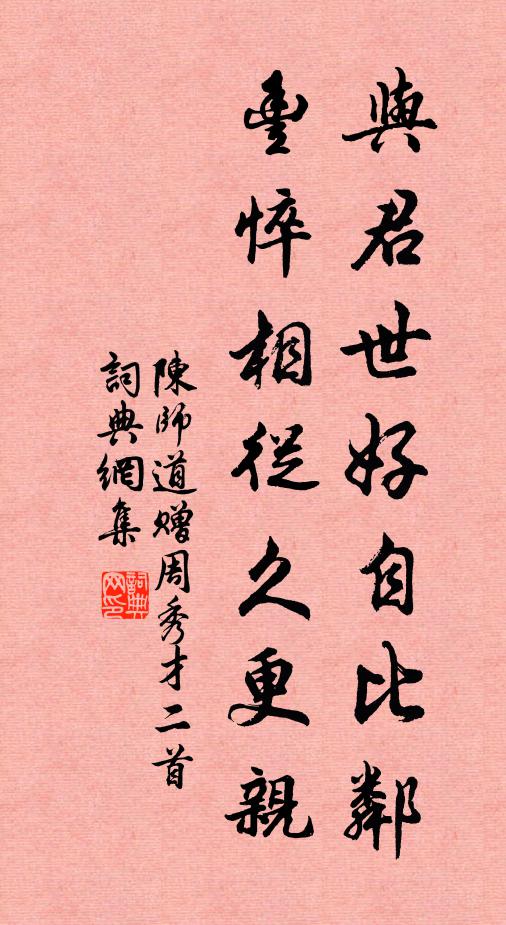 與君世好自比鄰
豊悴相從久更親
陳師道贈周秀才二首
詞典網集
詞典
网印